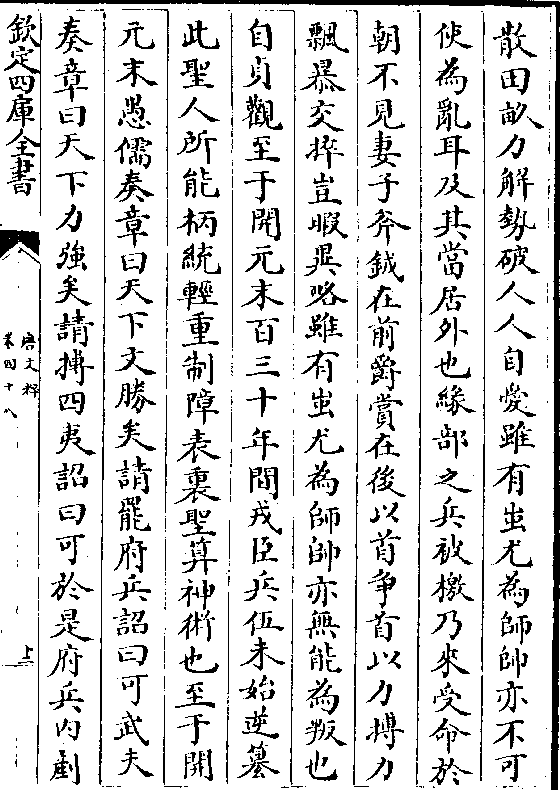 散田畝力解勢破人人自愛雖有蚩尤為師帥亦不可
使為亂耳及其當居外也緣部之兵被檄乃來受命於
朝不見妻子斧鉞在前爵賞在後以首争首以力搏力
飄暴交捽豈暇異略雖有蚩尤為師帥亦無能為叛也
自貞觀至于開元末百三十年間戎臣兵伍未始逆篡
此聖人所能柄統輕重制障表裏聖算神術也至于開
元末愚儒奏章曰天下文勝矣請罷府兵詔曰可武夫
奏章曰天下力強矣請搏四夷詔曰可於是府兵内剷
欽定四庫全書
唐文粹
卷四十八